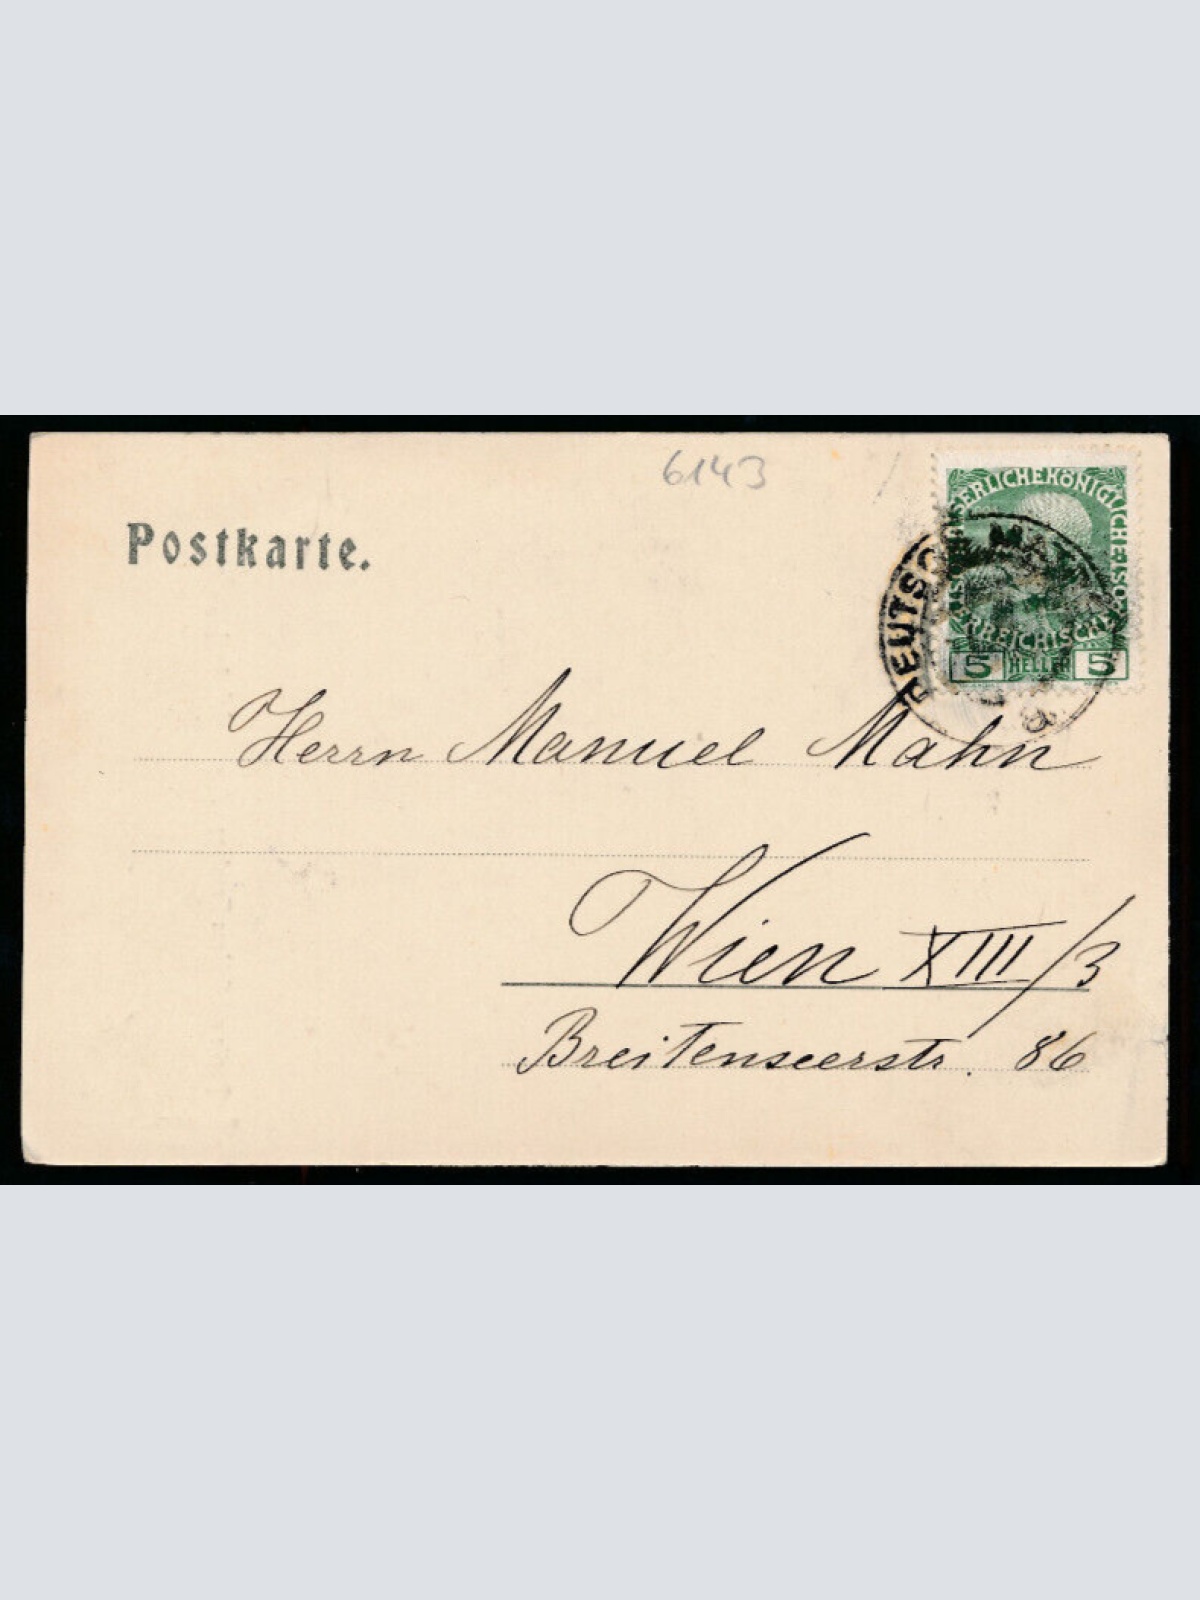 6143
Postkarte.
KAISERLICHE KÖNIGLICHE ÖSTERREICHISCHE
5 HELLER 5
Herrn Manuel Mahn
Wien XIII/3
Breitenseerstr. 86